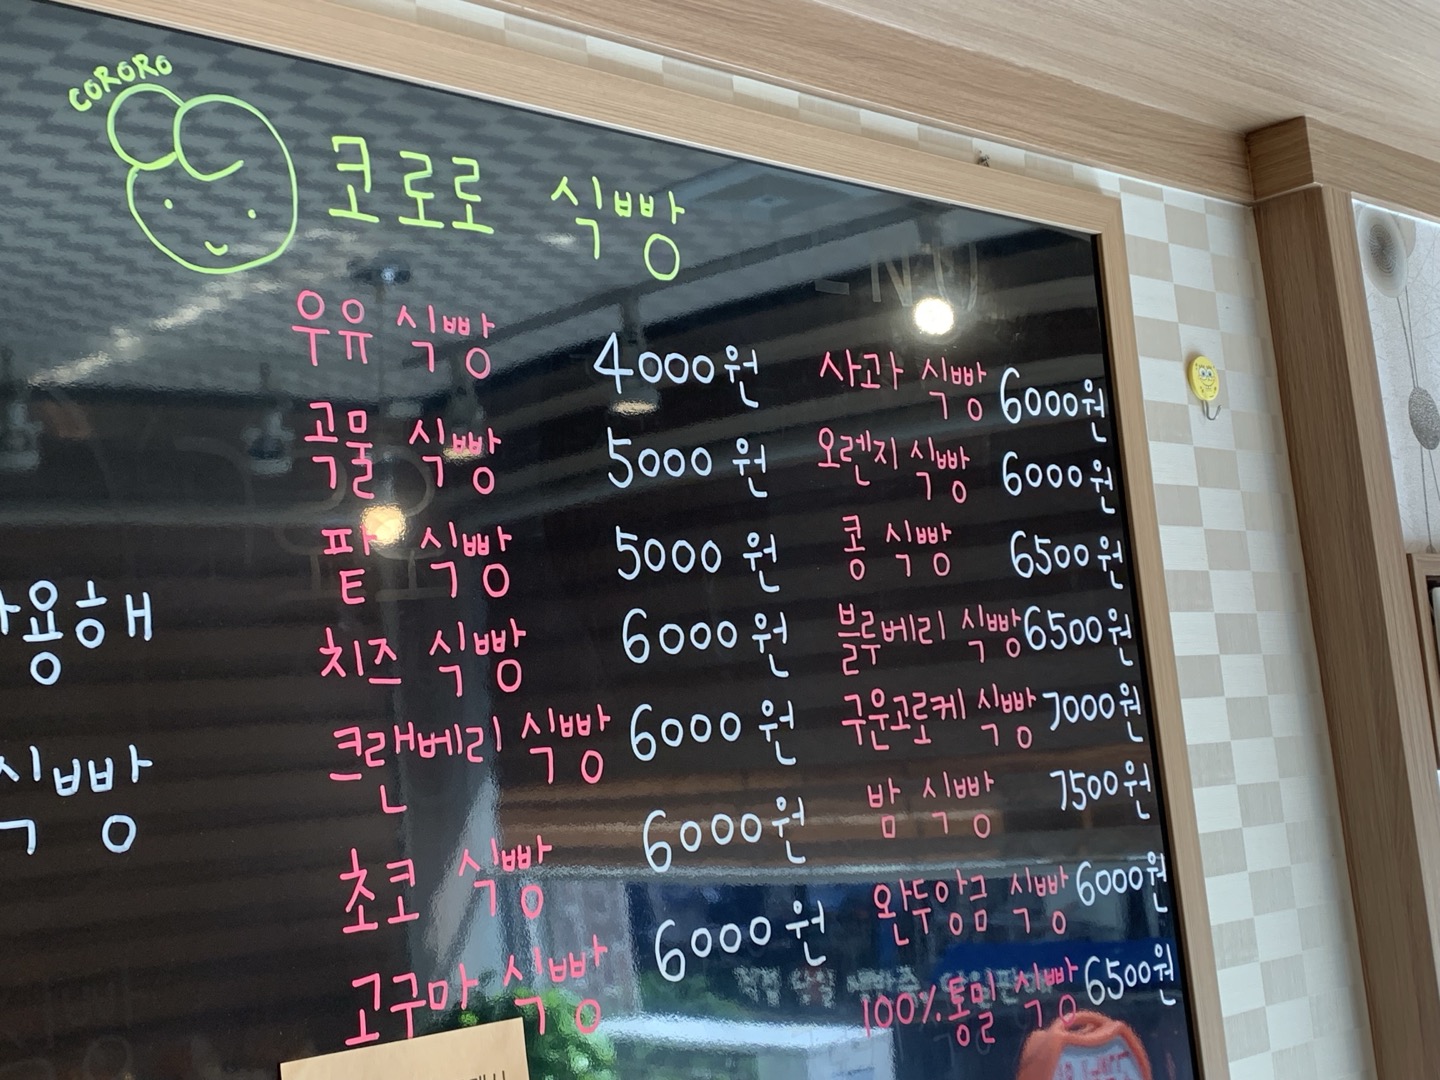 CORORO
코로로 식빵
우유 식빵 4000원
곡물 식빵 5000원
팥 식빵 5000원
치즈 식빵 6000원
크랜베리 식빵 6000원
초코 식빵 6000원
고구마 식빵 6000원
사과 식빵 6000원
오렌지 식빵 6000원
콩 식빵 6500원
블루베리 식빵 6500원
구운고로케 식빵 7000원
밤 식빵 7500원
완두앙금 식빵 6000원
100% 통밀 식빵 6500원
용해
식빵